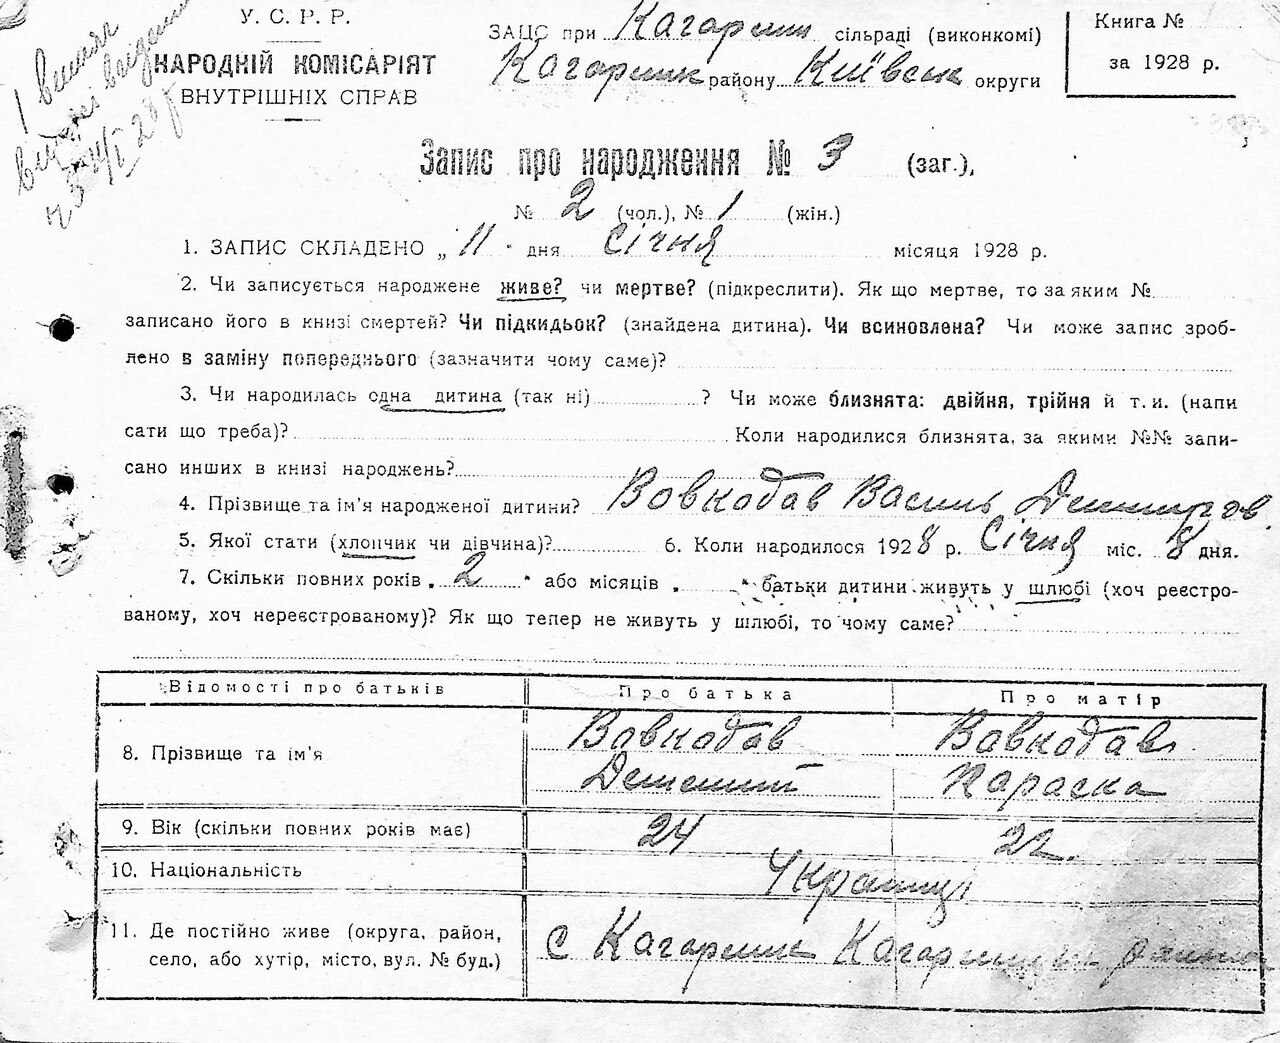 У. С. Р. Р.
НАРОДНІЙ КОМІСАРІЯТ
ВНУТРІШНІХ СПРАВ
ЗАЦС при Кагарлик сільраді (виконкомі)
Кагарлик району Київськ округи
Книга №
за 1928 р.
Запис про народження № 3 (заг.),
№ 2 (чол.), № 1 (жін.)
1. ЗАПИС СКЛАДЕНО „ 11 " дня Січня місяця 1928 р.
2. Чи записується народжене живе? чи мертве? (підкреслити). Як що мертве, то за яким №
записано його в книзі смертей? Чи підкидьок? (знайдена дитина). Чи всиновлена? Чи може запис зроб-
лено в заміну попереднього (зазначити чому саме)?
3. Чи народилась одна дитина (так ні) ? Чи може близнята: двійня, трійня й т. и. (напи
сати що треба)? Коли народилися близнята, за якими №№ запи-
сано инших в книзі народжень?
4. Прізвище та ім'я народженої дитини? Вовкодав Василь
5. Якої стати (хлопчик чи дівчина)? 6. Коли народилося 1928 р. Січня міс. 8 дня.
7. Скільки повних років „ 2 " або місяців „ " батьки дитини живуть у шлюбі (хоч реєстро-
ваному, хоч нереєстрованому)? Як що тепер не живуть у шлюбі, то чому саме?
Відомості про батьків Про батька Про матір
8. Прізвище та ім'я Вовкодав Вовкодав
Параска
9. Вік (скільки повних років має) 24 22
10. Національність Українці
11. Де постійно живе (округа, район,
село, або хутір, місто, вул. № буд.) с Кагарлик